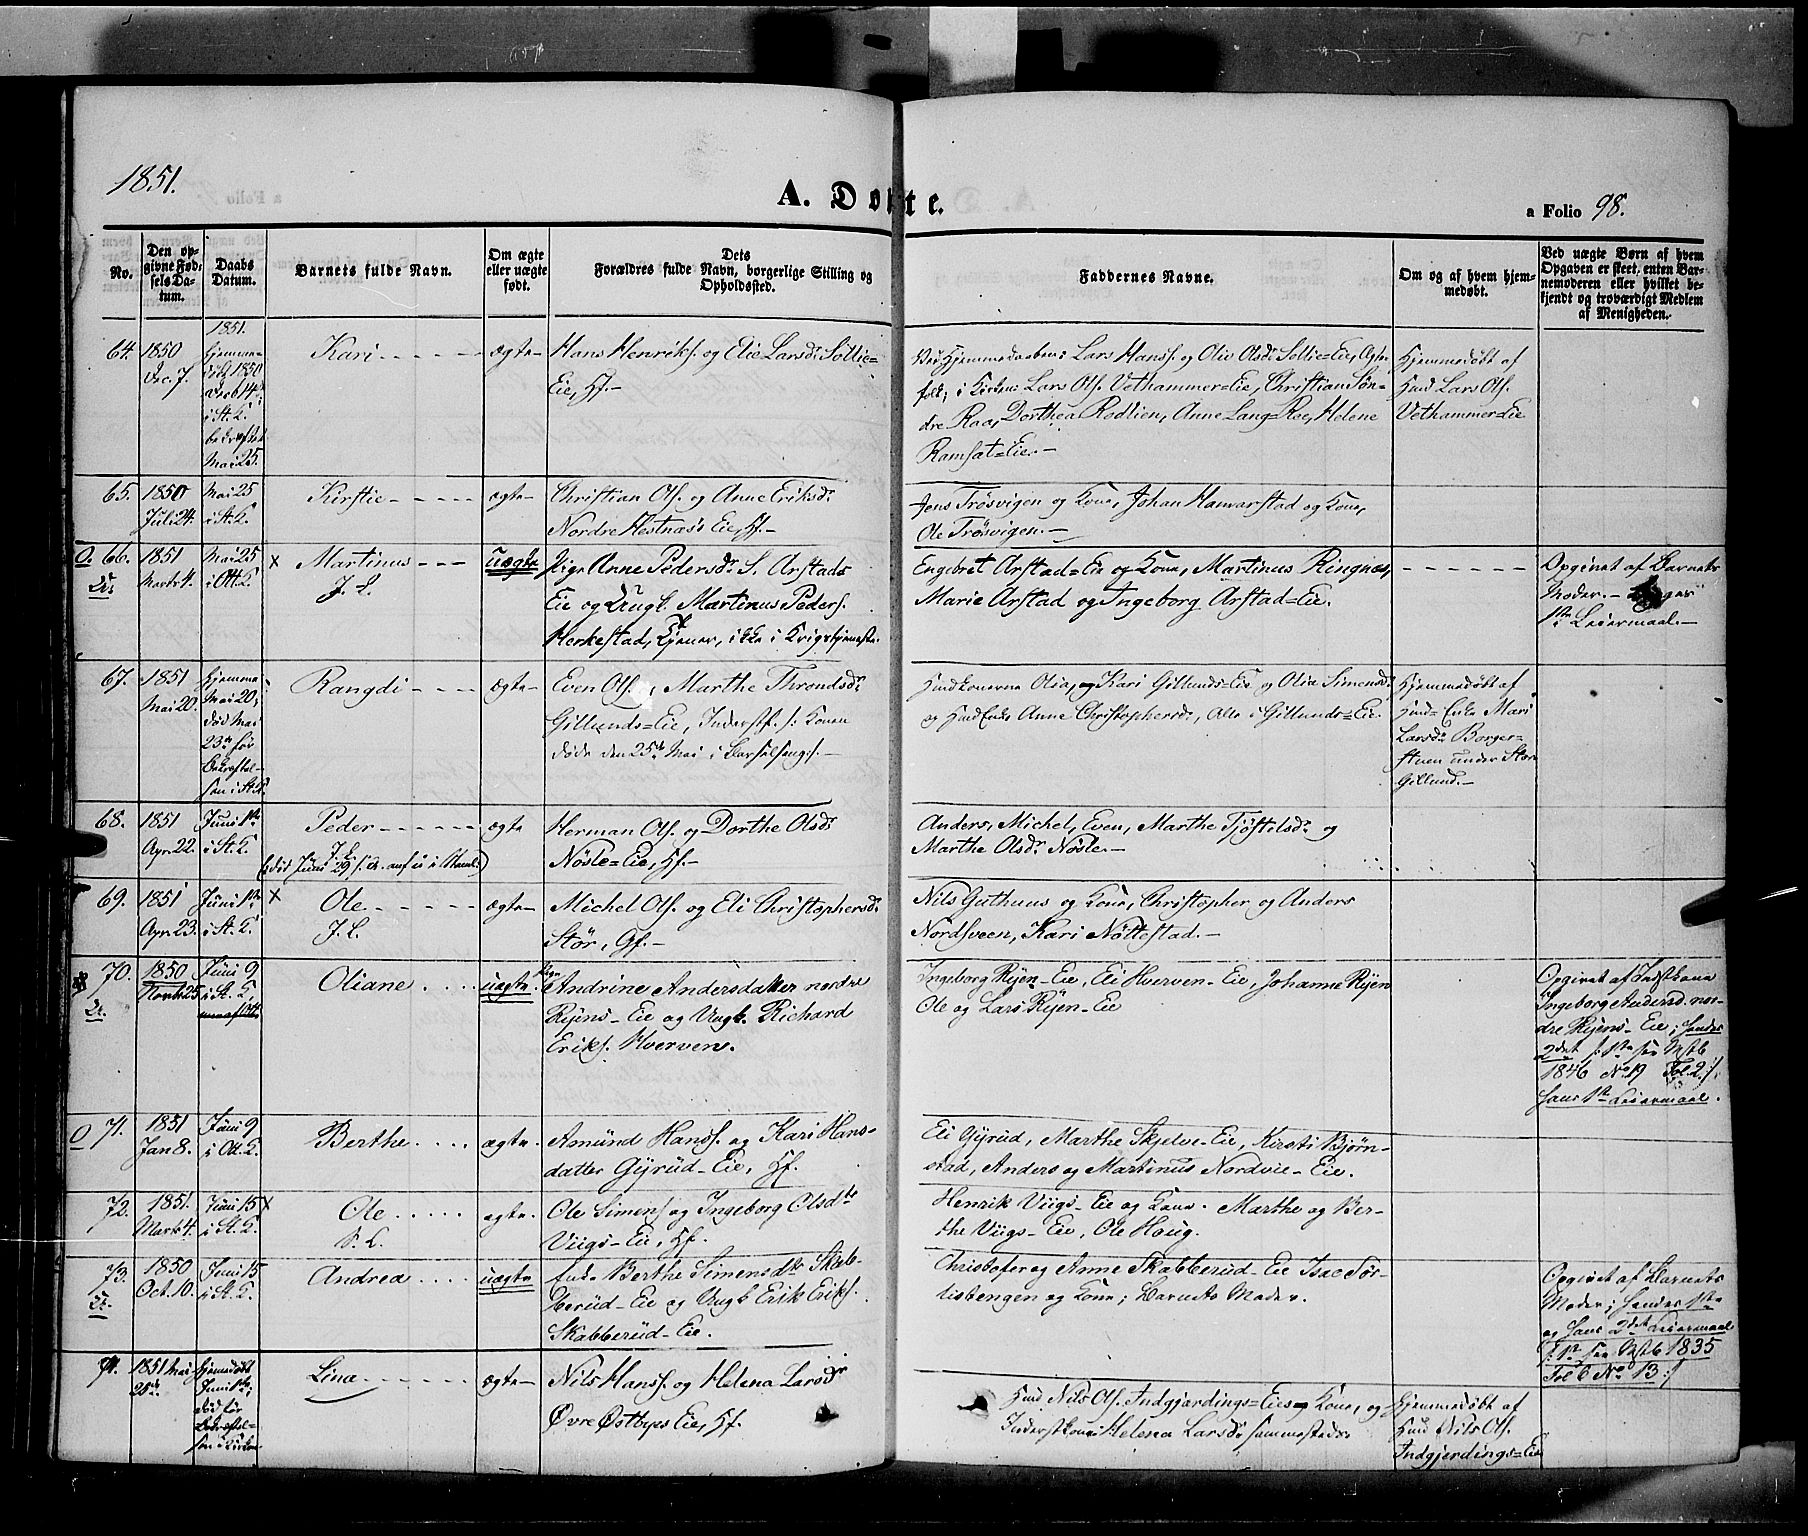 1851.
A. Døbte.
a Folio 98.
No.
Den op-
givne Fød-
sels Da-
tum.
Daabs
Datum.
Barnets fulde Navn.
Om ægte
eller uægte
født.
Dets
Forældres fulde Navn, borgerlige Stilling og
Opholdssted.
Faddernes Navne.
Om og af hvem hjem-
medøbt.
Ved uægte Børn af hvem
Opgaven er skeet, enten Bar-
nemoderen eller hvilket be-
kjendt og troværdigt Medlem
af Menigheden.
64.
1850
Dec. 7.
1851.
hjemme-
døbt 1850
Decb 14
i St. K.
bekræftet
Mai 25.
Kari
ægte
Hans Henriks. og Elie Larsdr Sollie=
Eie, Hf.
Ved Hjemmedaaben: Lars Hanss. og Olie Olsdr Sollie=Eie, Ægte-
folk; i Kirken: Lars Ols. Vethammer=Eie, Christian Søn-
dre Raa, Dorthea Rodlien, Anne Lang=Roe, Helene
Ramsæt=Eie.
Hjemmedøbt af
Hmd Lars Ols.
Vethammer=Eie
65.
1850
Juli 24.
Mai 25
i St. K.
Kirstie
ægte
Christian Ols. og Anne Eriksdr
Nordre Hestnæs's Eie, Hf.
Jens Trøsvigen og Kone, Johan Hanvarstad og Kone,
Ole Trøsvigen.
O. 66.
1851
Marts 4.
Mai 25
i Ott. K.
x
Martinus
J. L.
uægte
Pige Anne Pedersdr S. Arstads
Eie og Ungk. Martinus Peders.
Herkestad, Tjener, ikke i Krigstjeneste.
Engebret Arstad=Eie og Kone, Martinus Ringnæs,
Marie Arstad og Ingeborg Arstad=Eie.
Opgivet af Barnets
Moder. - Begges
1ste Leiermaal.
67.
1851
Mai 20.
Hjemme
Mai 20,
død Mai
23de før
Bekræftel-
sen i St. K.
Rangdi
ægte
Even Ols., Marthe Throndsdr
Gillunds=Eie, Inderstf. /: Konen
døde den 25de Mai i Barselseng :/.
Hmdkonerne Olia, og Kari Gillunds=Eie og Olia Simensdr
og HmdEnke Anne Christophersdr, Alle i Gillunds=Eie.
Hjemmedøbt af
Hmd=Enke Mari
Larsdr Borger-
stuen under Store
Gillund.
68.
1851
Apr. 22.
Juni 1ste
i St. K.
Peder
J. L.
ægte
Herman Ols. og Dorthe Olsdr
Nøsle=Eie, Hf.
Anders, Michel, Even, Marthe Tjøstelsdr og
Marthe Olsdr Nøsle.
69.
1851
Apr. 23.
Juni 1ste
i St. K.
x
Ole
J. L.
ægte
Michel Ols. og Eli Christophersdr
Stør, Gf.
Nils Guthuus og Kone, Christopher og Anders
Nordsveen, Kari Nøttestad.
70.
1850
Novb 25
Juni 9
i St. K.
Oliane
uægte
Pige
Andrine Andersdatter nordre
Ryens-Eie og Ungk. Richard
Eriks. Hverven.
Ingeborg Ryen-Eie, Eli Hverven-Eie, Johanne Ryen
Ole og Lars Ryen-Eie
Opgivet af Indstkone
Ingeborg Andersd. nor-
dre Ryens-Eie; hendes
2det /: 1ste see Mstb
1846 No 19 Fol. 2 :/
hans 1ste Leiermaal.
O 71.
1851
Jan 8.
Juni 9
i Ott. K.
Berthe
ægte.
Amund Hanss. og Kari Hans-
datter Gyrud-Eie, Hf.
Eli Gyrud, Marthe Skjelve-Eie, Kirsti Bjørn-
stad, Anders og Martinus Nordvie-Eie.
72.
1851.
Marts 4.
Juni 15
i St. K.
x
Ole
P. L.
egte
Ole Simens. og Ingeborg Olsdtr
Viigs-Eie, Hf.
Henrik Viigs-Eie og Kone. Marthe og Ber-
the Viigs-Eie, Ole Houg.
73.
1850
Oct. 10.
Juni 15
i St. K.
Andrea
uægte
Enke Berthe Simensdtr Skab-
berud-Eie og Ungk Erik Eriks.
Skabberud-Eie.
Christofer og Anne Skabberud-Eie Isac Tør-
lisbengen og Kone; Barnets Moder.
Opgivet af Barnets
Moder; hendes 1ste
og hans 2det Leiermaal
/: 1ste see Mstb 1835
Fol 6 No 13 :/
74.
1851 Mai
25de
hjemmedøbt
Juni 1ste;
død før
Bekræftel=
sen i Kirken
Lina
ægte
Nils Hanss. og Helena Larsdr
Øvre Østbyes Eie, Hf.
Hmd Nils Ols. Indgjerdings=Eie og Kone, og
Inderstkone Helena Larsdr sammesteds.
Hjemmedøbt af
Hmd Nils Ols.
Indgjerdings=Eie